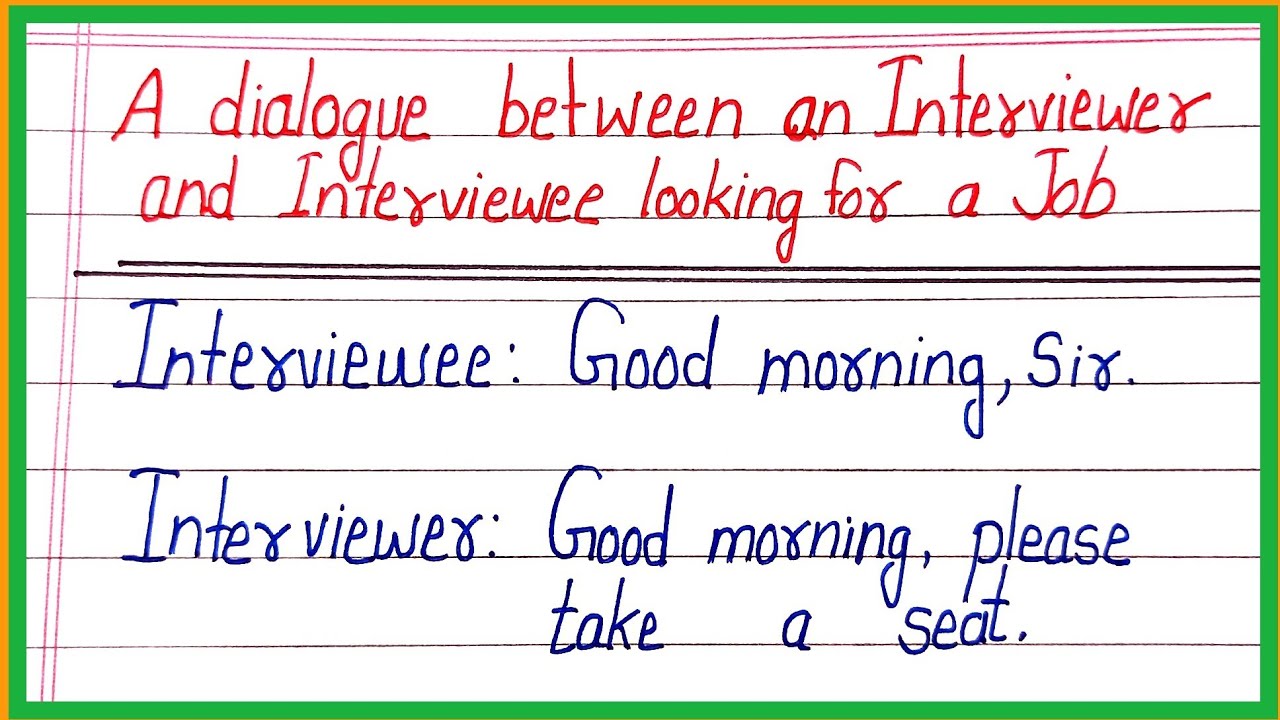 A dialogue between an Interviewer
and Interviewee looking for a Job
Interviewee: Good morning, Sir.
Interviewer: Good morning, please
take a seat.